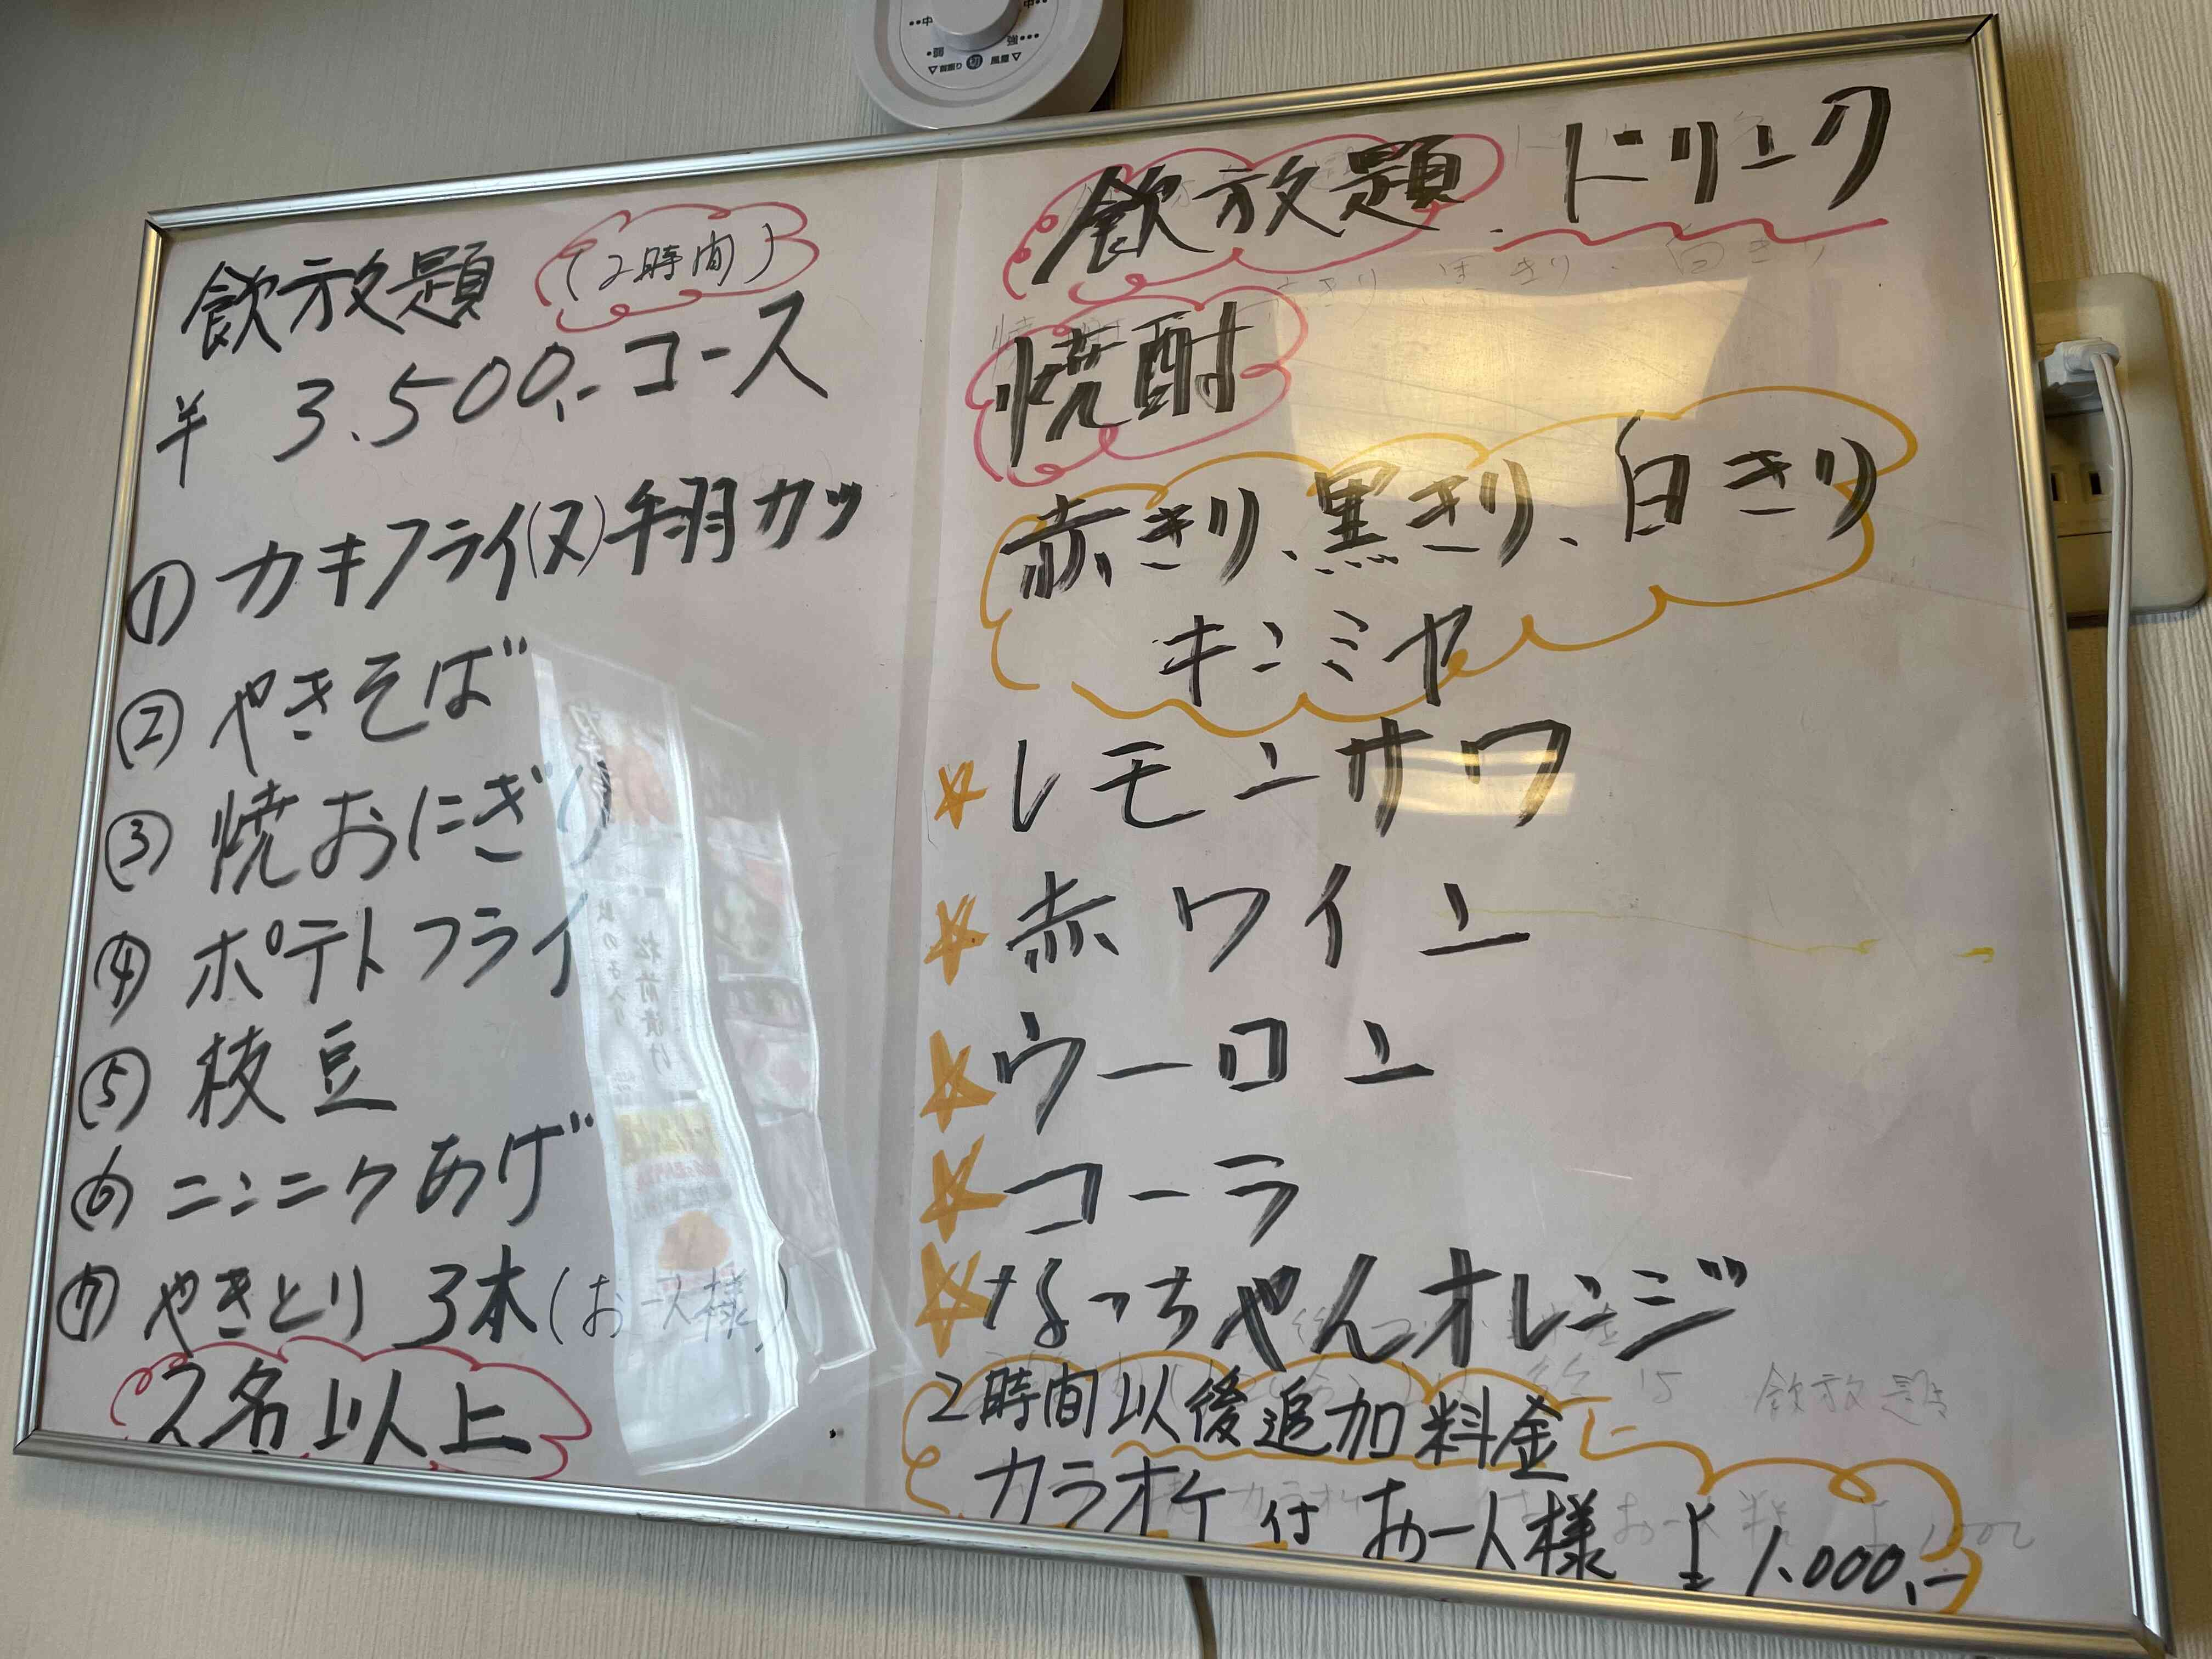 飲放題 (2時間)
¥ 3.500.- コース
① カキフライ(又)手羽カツ
② やきそば
③ 焼おにぎり
④ ポテトフライ
⑤ 枝豆
⑥ ニンニクあげ
⑦ やきとり 3本(お一人様)
2名以上
飲放題 ドリンク
焼酎
赤きり、黒きり、白きり
キンミヤ
☆ レモンサワ
☆ 赤ワイン
☆ ウーロン
☆ コーラ
☆ なっちゃんオレンジ
2時間以後追加料金
カラオケ付 お一人様 ¥1.000.-
中
中
弱
強
首振り
切
風量